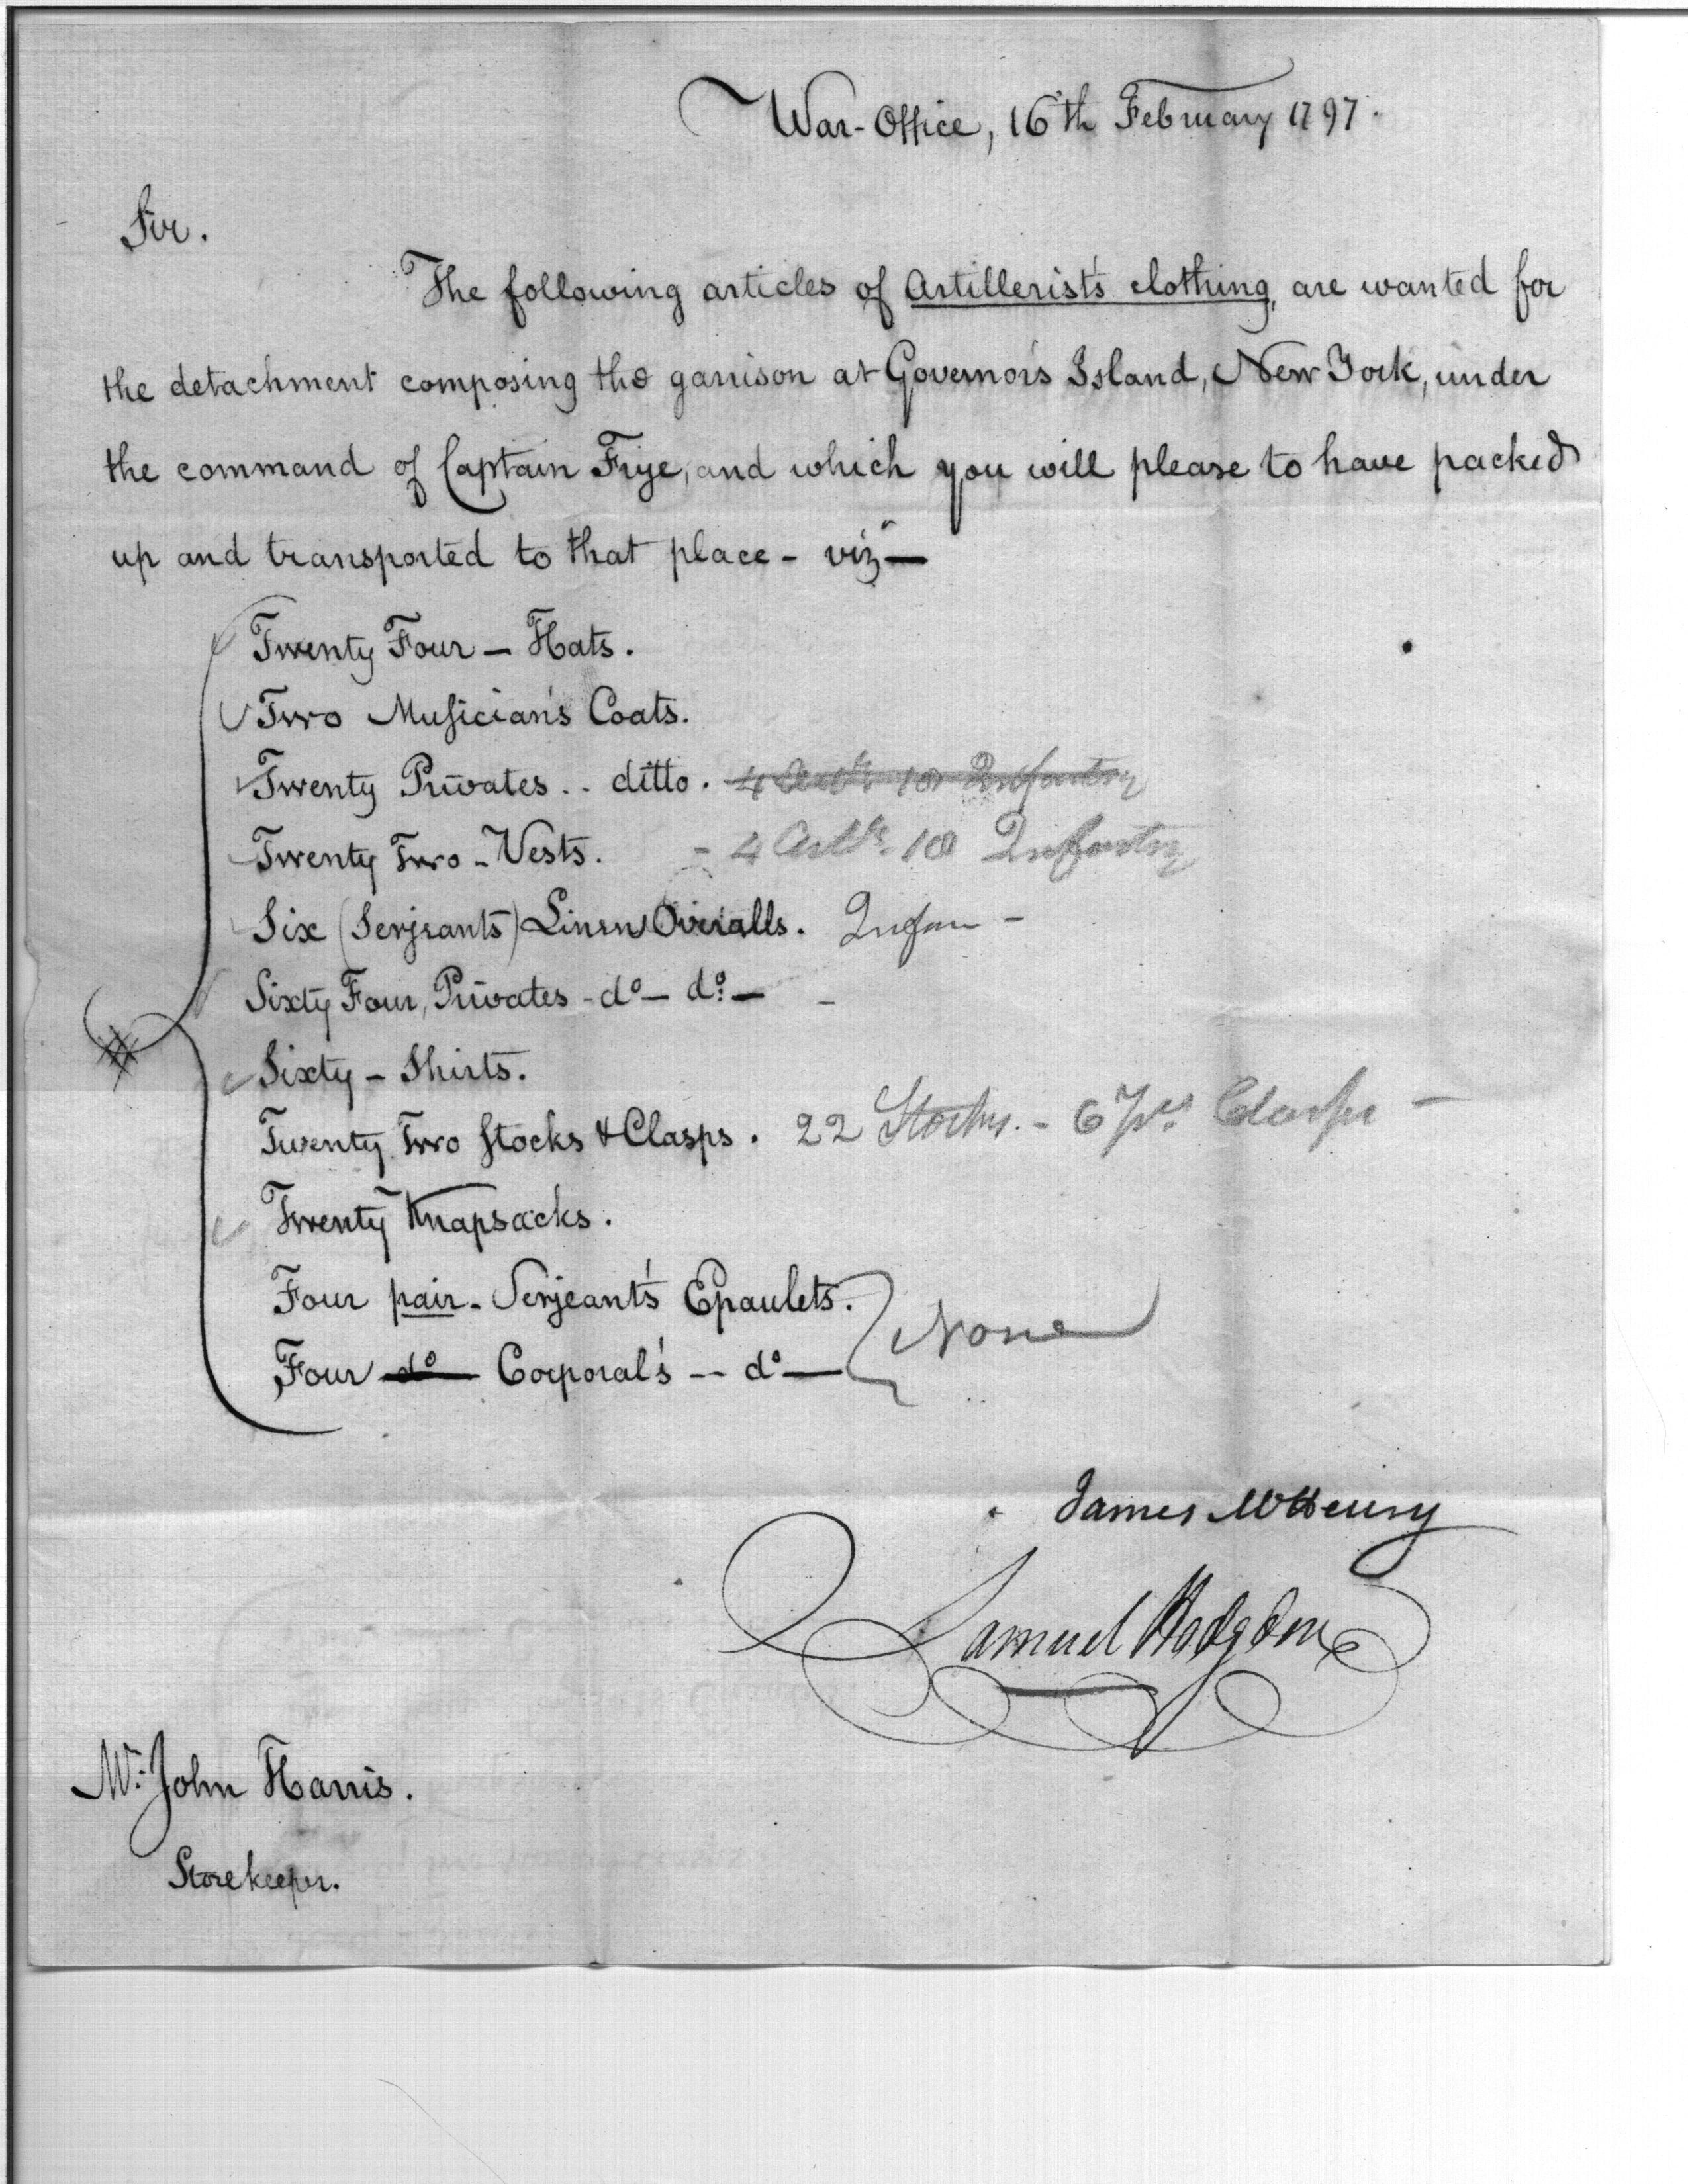 War-Office, 16th February 1797.
Sir.
The following articles of Artillerist's clothing, are wanted for
the detachment composing the garrison at Governor's Island, New York, under
the command of Captain Frye, and which you will please to have packed
up and transported to that place - viz —
Twenty Four — Hats.
Two Musician's Coats.
Twenty Privates .. ditto. 4 Arty 18 Infantry
Twenty Two - Vests. - 4 Arty 18 Infantry
Six (Serjeants) Linen Overalls. Infan -
Sixty Four, Privates - do — do — -
Sixty - Shirts.
Twenty Two Stocks & Clasps. 22 Stocks. - 6 prs. Clasps -
Twenty Knapsacks.
Four pair - Serjeant's Epaulets.
None
Four do Corporal's -- do —
James McHenry
Samuel Hodgdon
Mr. John Harris.
Storekeeper.